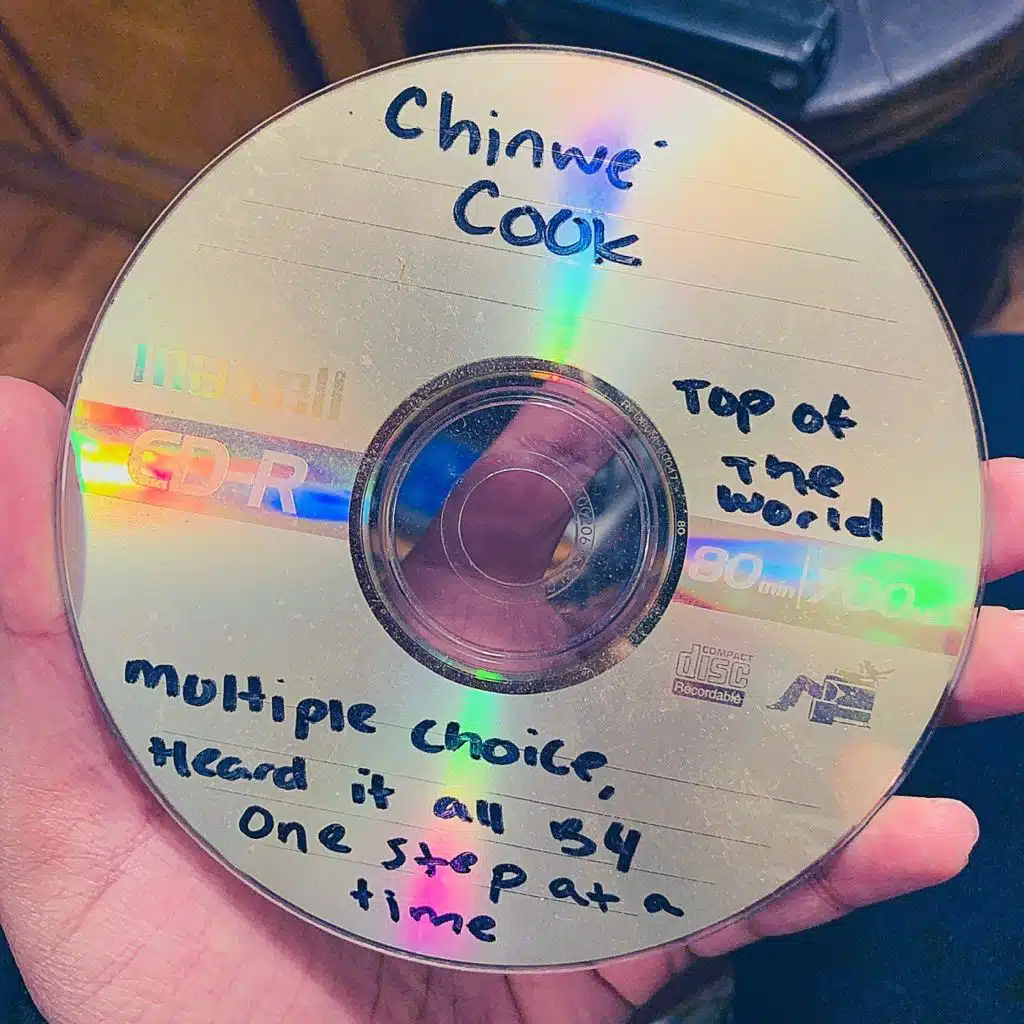 Chinwe
Cook
maxell
CD-R
Top of
The
world
80min 700
COMPACT
disc
Recordable
multiple choice,
Heard it all By
One step at a
time
80